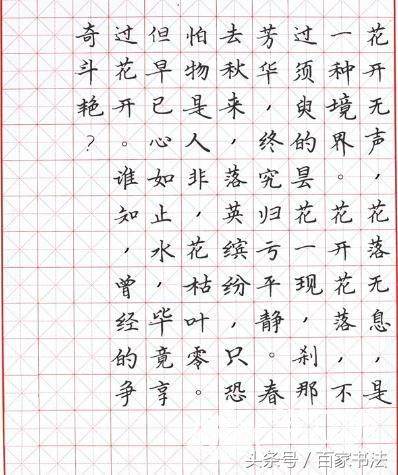 花开无声，花落无息，是
一种境界。花开花落，不
过须臾的昙花一现，刹那
芳华，终究归亏平静。春
去秋来，落英缤纷，只恐
怕物是人非，花枯叶零。
但早已心如止水，毕竟享
过花开。谁知，曾经的争
奇斗艳？
头条号／百家书法